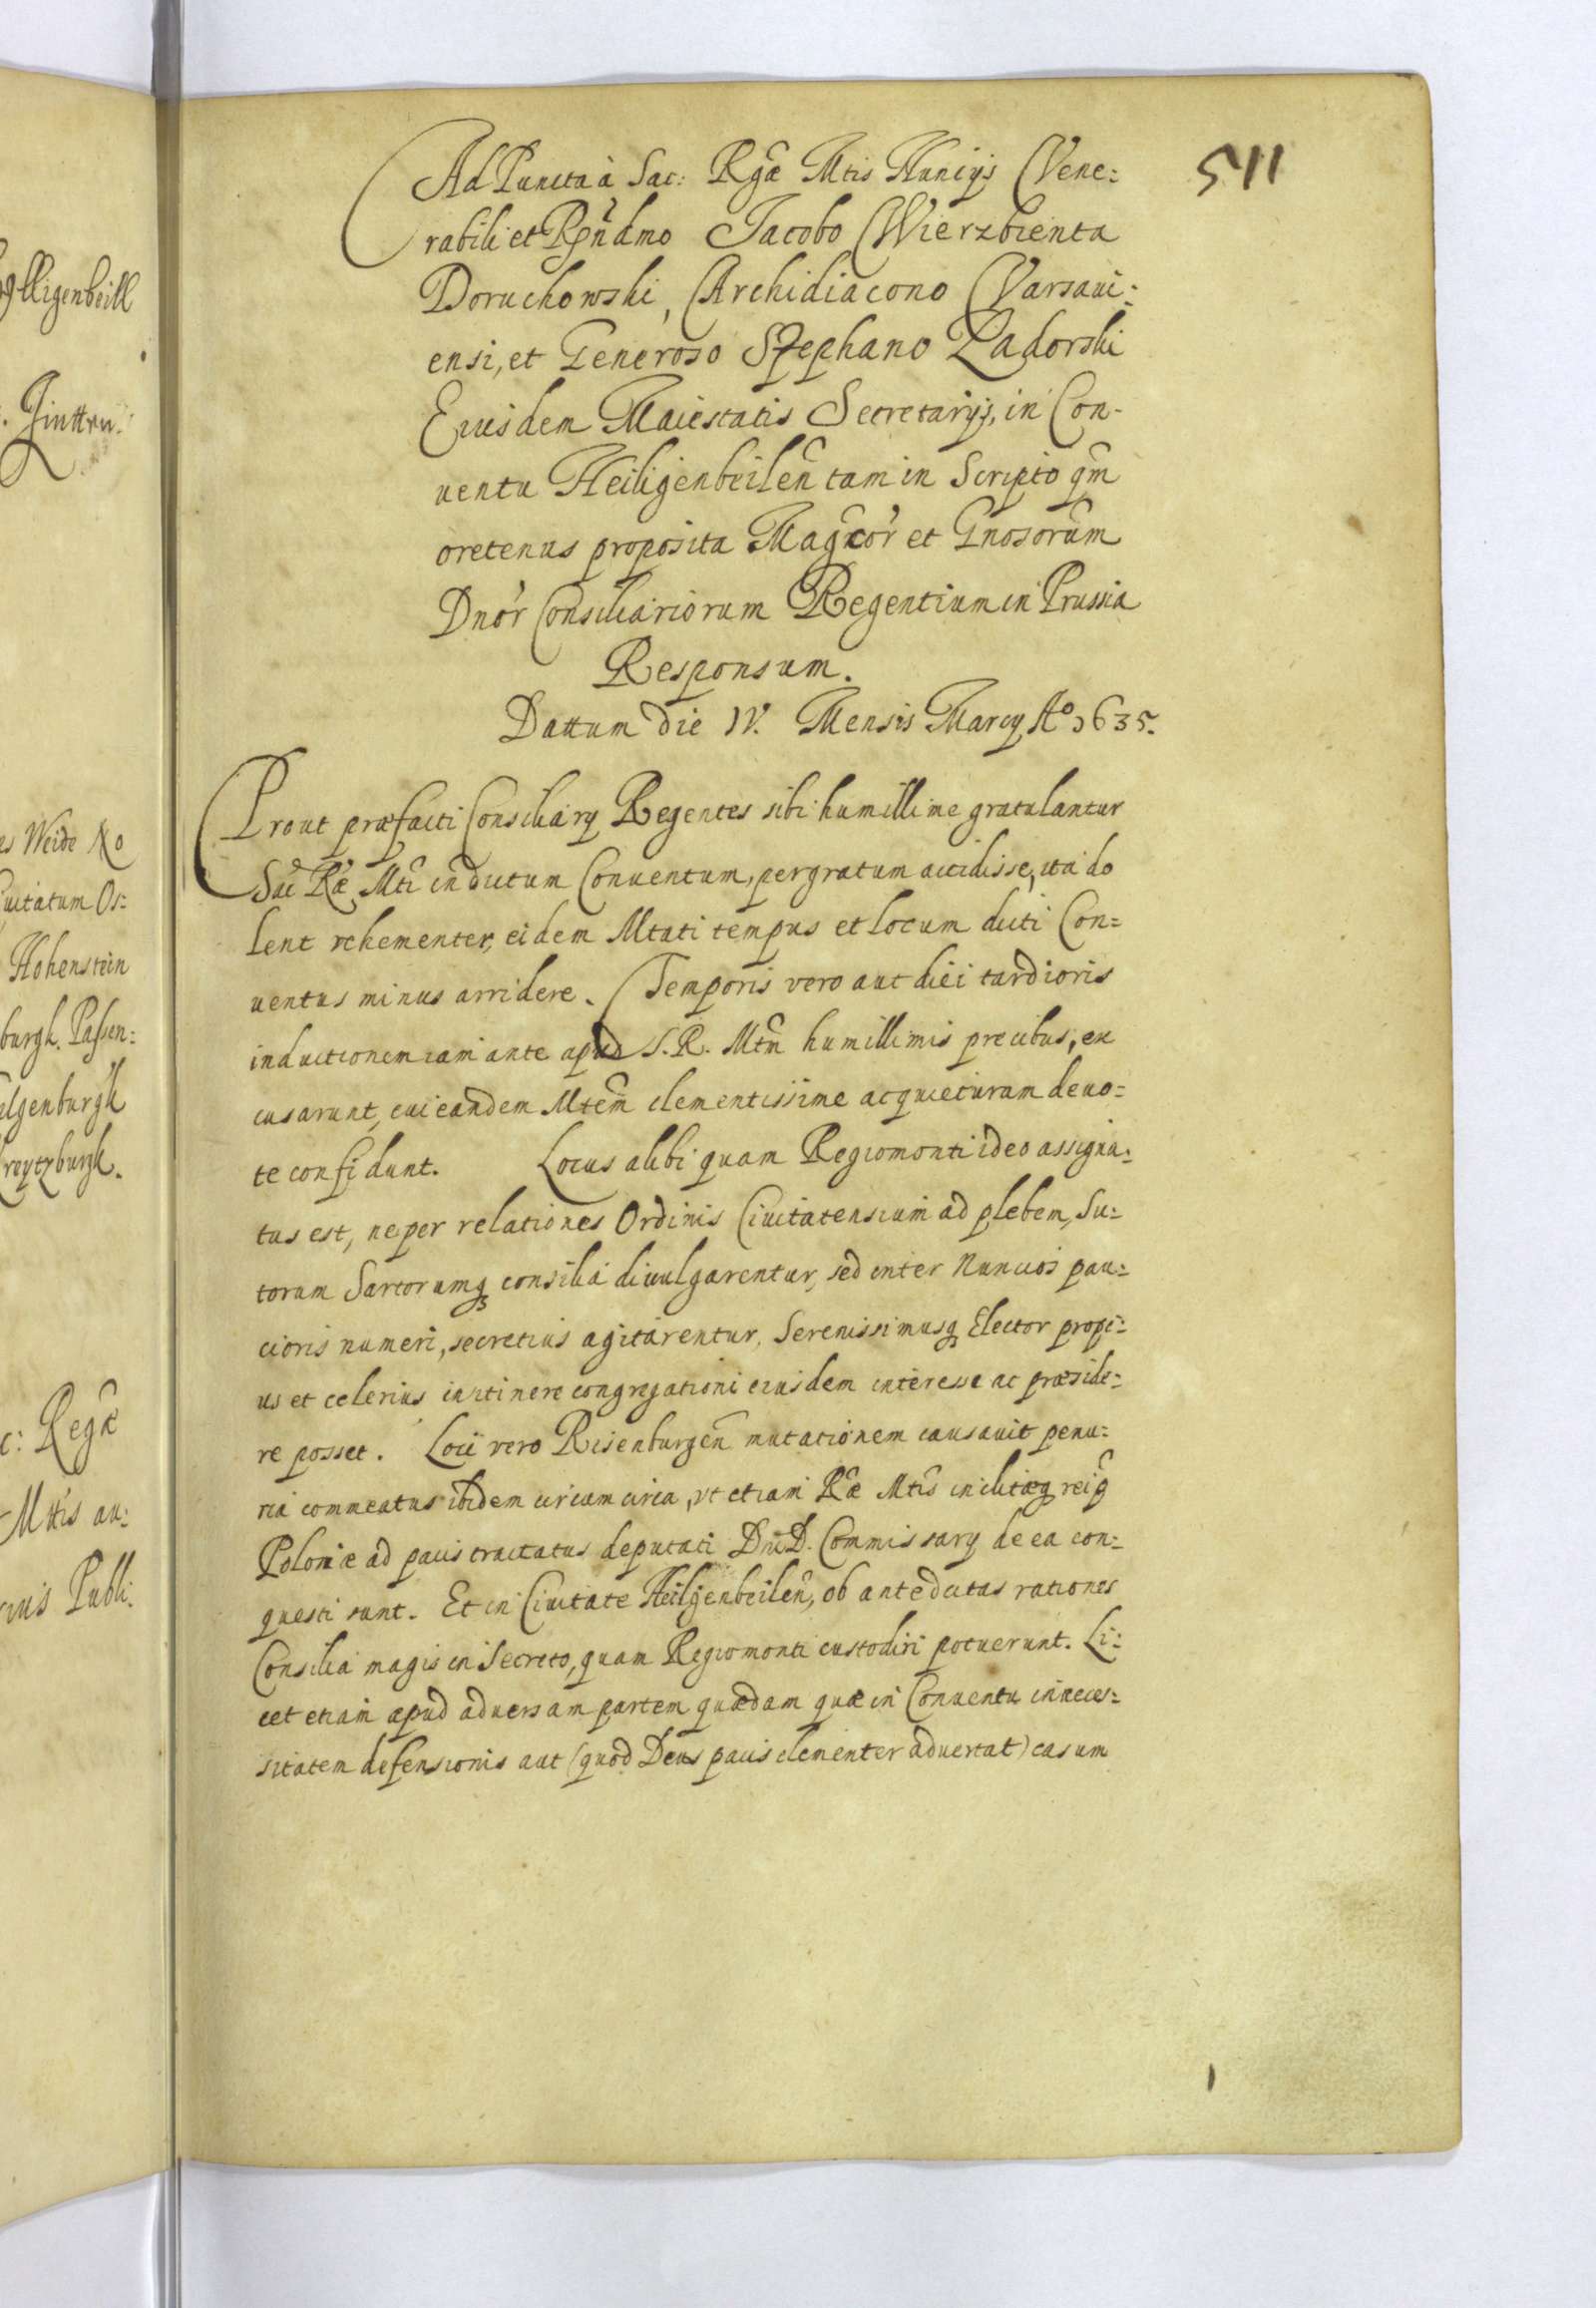 lligenbeill
Zintten.
es Weide No
Civitatum Os=
Hohenstein
burgk. Passen=
ilgenburgk
Creytzburgk.
c: Regæ
Mttis au:
Publi.
511
Ad Puncta à Sac: Rgæ Mtis Nuncijs Vene=
rabili et Rndmo Jacobo Wierzbienta
Doruchowski, Archidiacono Varsavi=
ensi, et Generoso Stephano Zadorski
Eiusdem Maiestatis Secretarijs, in Con-
uentu Heiligenbeilen tam in Scripto qm
oretenus proposita Magcor et Gnosorum
Dnor Consiliariorum Regentium in Prussia
Responsum.
Dattum die IV. Mensis Marcij Ao 1635.
Prout præfacti Consiliarij Regentes sibi humillime gratulantur
Sac Ræ Mti indictum Conuentum, pergratum accidisse, ita do
lent vehementer, eidem Mtati tempus et locum dicti Con=
uentus minus arridere. Temporis vero aut diei tardioris
inductionem iam ante apud S. R. Mtm humillimis precibus, ex
cusarunt, cui eandem Mtem clementissime acquieturam deuo=
te confidunt. Locus alibi quam Regiomonti ideo assigna=
tus est, ne per relationes Ordinis Ciuitatensium ad plebem, Su=
torum Sartorumq consilia diuulgarentur, sed inter Nuncios pau=
cioris numeri, secretius agitarentur, Serenissimusq Elector propi=
us et celerius in itinere congregationi eiusdem interesse ac præside=
re posset. Loci vero Risenburgen mutationem causauit penu=
ria commeatus ibidem circum circa, vt etiam Ræ Mtis inclitæq reip
Poloniæ ad pacis tractatus deputati Dn D. Commissarij de ea con=
questi sunt. Et in Ciuitate Heilgenbeilen, ob antedictas rationes
Consilia magis in Secreto, quam Regiomonti custodiri potuerunt. Li=
cet etiam apud aduersam partem quædam quæ in Conuentu in neces=
sitatem defensionis aut (quod Deus pacis clementer aduertat) casum